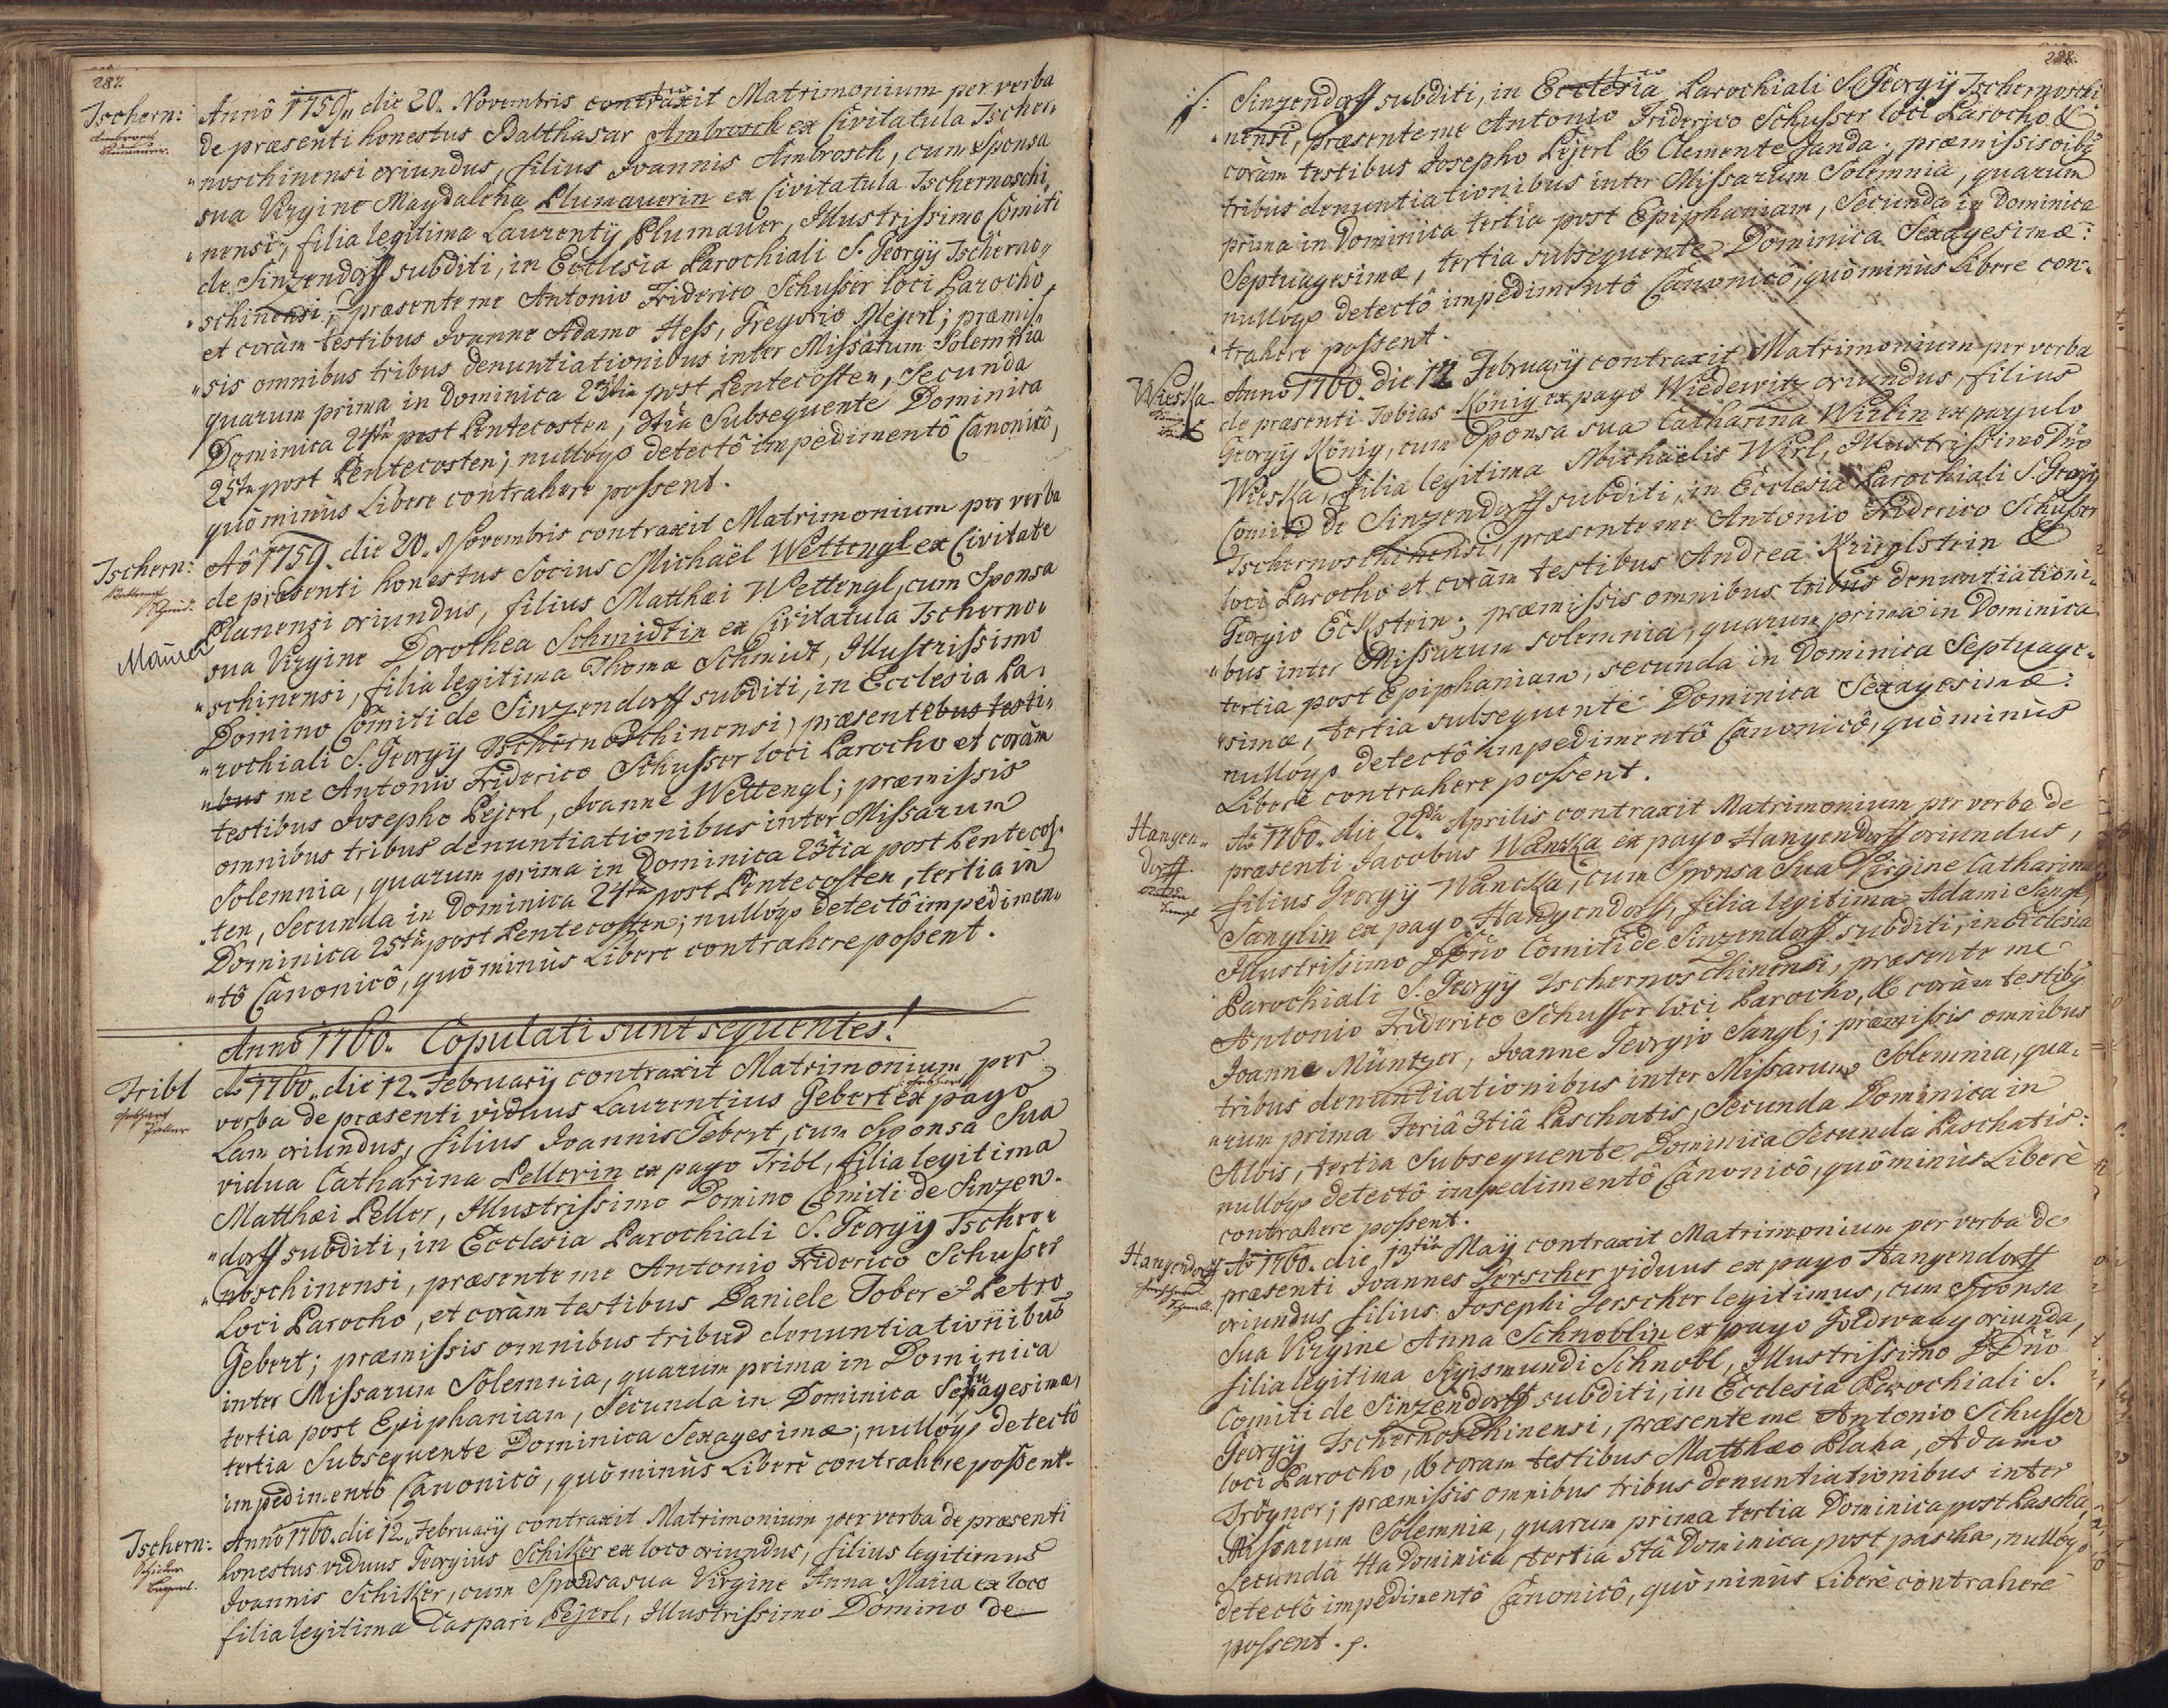 287.
Tschern:
Anno 1759. die 20. Novembris contraxit Matrimonium per verba
de præsenti honestus Balthasar Ambrosch ex Civitatula Tscher„
„noschinensi oriundus, filius Joannis Ambrosch, cum Sponsa
sua Virgine Magdalena Plumauerin ex Civitatula Tschernoschi„
„nensi, filia legitima Laurentij Plumauer, Illustrissimo Comiti
de Sinzendorff subditi, in Ecclesia Parochiali S. Georgij Tscherno„
„schinensi, præsente me Antonio Friderico Schusser loci Parocho,
et coràm testibus Joanne Adamo Hess, Gregorio Mejerl; præmis„
„sis omnibus tribus denuntiationibus inter Missarum Solemnia
quarum prima in Dominica 23tia post Pentecosten, Secunda
Dominica 24ta post Pentecosten, 3tia Subsequente Dominica
25ta post Pentecosten; nullóq detectô impedimentô Canonicô,
quò minùs Libere contrahere possent.
Tschern:
Maurer
Aô 1759. die 20. Novembris contraxit Matrimonium per verba
de præsenti honestus Socius Michaël Wettengl ex Civitate
Planensi oriundus, filius Matthæi Wettengl, cum Sponsa
sua Virgine Dorothea Schmidtin ex Civitatula Tscherno„
„schinensi, filia legitima Thomæ Schmidt, Illustrissimo
Domino Comiti de Sinzendorff subditi, in Ecclesia Pa„
„rochiali S. Georgij Tschernoschinensi, præsentebus testi„
„bus me Antonio Friderico Schusser loci Parocho et coràm
testibus Josepho Pejerl, Joanne Wettengl; præmissis
omnibus tribus denuntiationibus inter Missarum
Solemnia, quarum prima in Dominica 23tia post Pentecos„
„ten, Secunda in Dominica 24ta post Pentecosten, tertia in
Dominica 25ta post Pentecosten; nullóq detectô impedimen„
„tô Canonicô, quò minùs Libere contrahere possent.
Anno 1760. Copulati sunt sequentes!
Tribl
Ao 1760. die 12. Februarij contraxit Matrimonium per
verba de præsenti viduus Laurentius Gebert ex pago
Lam oriundus, filius Joannis Gebert, cum Sponsa Sua
vidua Catharina Pellerin ex pago Tribl, filia legitima
Matthæi Peller, Illustrissimo Domino Comiti de Sinzen„
„dorff subditi, in Ecclesia Parochiali S. Georgij Tscher„
„noschinensi, præsente me Antonio Friderico Schusser
Loci Parocho, et coràm testibus Daniele Tober et Petro
Gebert; præmissis omnibus tribus denuntiationibus
inter Missarum Solemnia, quarum prima in Dominica
tertia post Epiphaniam, Secunda in Dominica Septuagesimæ,
tertia Subsequente Dominica Sexagesimæ; nullóq detectô
impedimentô Canonicô, quò minùs Liberè contrahere possent.
Tschern:
Anno 1760. die 12. Februarij contraxit Matrimonium per verba de præsenti
honestus viduus Georgius Schiker ex loco oriundus, filius legitimus
Joannis Schiker, cum Sponsa sua Virgine Anna Maria ex loco
filia legitima Caspari Pejerl, Illustrissimo Domino de
288.
Sinzendorff subditi, in Ecclesia Parochiali S. Georgij Tschernoschi
„nensi, præsente me Antonio Friderico Schusser loci Parocho &
coràm testibus Josepho Pejerl & Clemente Janda; præmissis oibus
tribus denuntiationibus inter Missarum Solemnia, quarum
prima in Dominica tertia post Epiphaniam, Secunda in Dominica
Septuagesimæ, tertia subsequente Dominica Sexagesimæ:
nullóq detectô impedimentô Canonicô, quò minùs Libere con„
„trahere possent.
Wieska
Anno 1760. die 12 Februarij contraxit Matrimonium per verba
de præsenti Tobias König ex pago Wiedewitz oriundus, filius
Georgij König, cum Sponsa sua Catharina Wirlin ex pagulo
Wieska, filia legitima Michaëlis Wirl, Illustrissimo Dño
Comiti de Sinzendorff subditi, in Ecclesia Parochiali S. Georgij
Tschernoschinensi, præsente me Antonio Friderico Schusser
loci Parocho et coràm testibus Andrea Krieglstein &
Georgio Eckstein; præmissis omnibus tribus denuntiationi„
„bus inter Missarum solemnia, quarum prima in Dominica
tertia post Epiphaniam, secunda in Dominica Septuage„
„simæ, tertia subsequente Dominica Sexagesimæ:
nullóq detectô impedimentô Canonicô, quò minùs
Liberè contrahere possent.
Hangen„
dorff
Ao 1760. die 22da Aprilis contraxit Matrimonium per verba de
præsenti Jacobus Wancka ex pago Hangendorff oriundus,
filius Georgij Wancka, cum Sponsa Sua Virgine Catharina
Sanglin ex pago Hangendorff, filia legitima Adami Sangl,
Illustrissimo Dño Comiti de Sinzendorff subditi, in Ecclesia
Parochiali S. Georgij Tschernoschinensi, præsente me
Antonio Friderico Schusser loci Parocho, & coràm testibus
Joanne Müntzer, Joanne Georgio Sangl; præmissis omnibus
tribus denuntiationibus inter Missarum Solemnia, qua„
„rum prima Feriâ 3tiâ Paschatis, Secunda Dominica in
Albis, tertia Subsequente Dominica Secunda Paschatis:
nullóq detectô impedimentô Canonicô, quò minùs Liberè
contrahere possent.
Hangendorff
Ao 1760. die Maij contraxit Matrimonium per verba de
præsenti Joannes Jerscher viduus ex pago Hangendorff
oriundus filius Josephi Jerscher legitimus, cum Sponsa
Sua Virgine Anna Schnoblin ex pago Goldwaag oriunda,
filia legitima Sigismundi Schnobl, Illustrissimo Dño
Comiti de Sinzendorff subditi, in Ecclesia Parochiali S.
Georgij Tschernoschinensi, præsente me Antonio Schusser
loci Parocho, & coram testibus Matthæo Blaha, Adamo
Trögner; præmissis omnibus tribus denuntiationibus inter
Missarum Solemnia, quarum prima tertia Dominica post Pascha,
Secunda 4ta Dominica, tertia 5tâ Dominica post pascha, nullóq
detectô impedimentô Canonicô, quò minùs Liberè contrahere
possent.